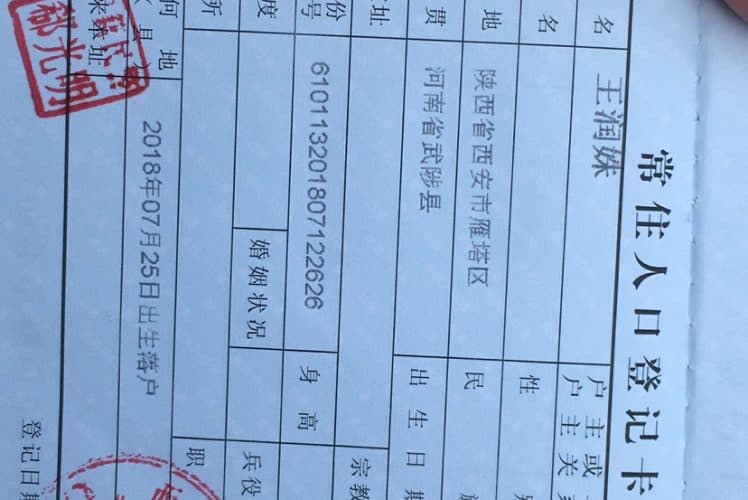 常住人口登记卡
名 王润姝 户主或
户主关
名 性
地 陕西省西安市雁塔区 民
贯 河南省武陟县 出生日期
址 宗教
份 号 610113201807122626 身高
度 婚姻状况 兵役
所 职
何地 2018年07月25日出生落户
县
来本址
郗光明
登记日期